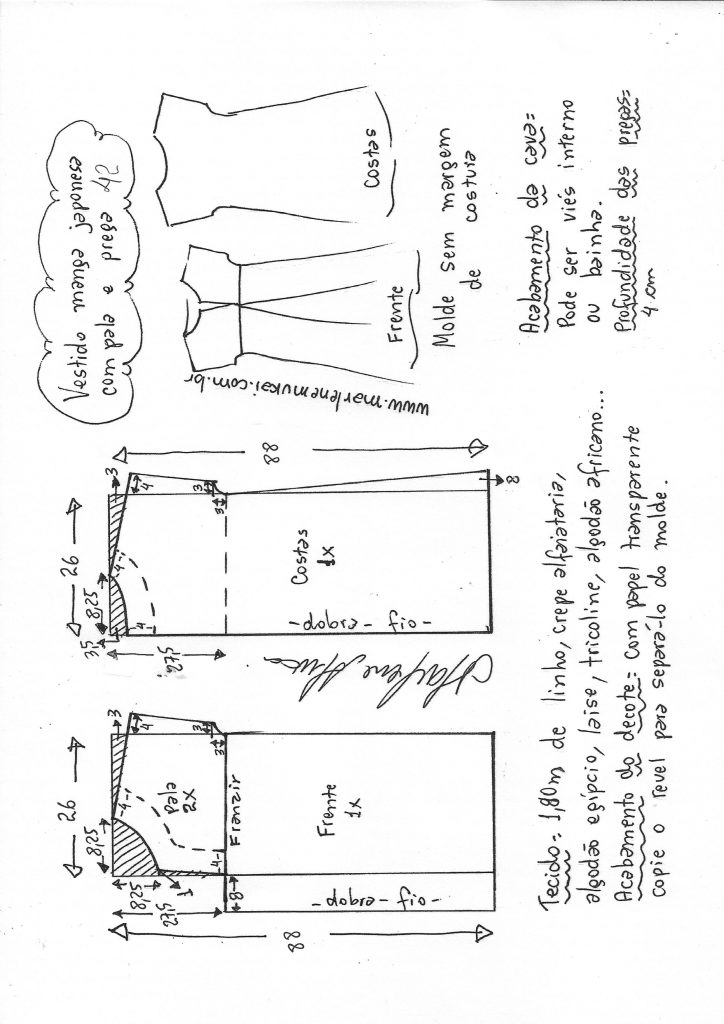 Vestido manga japonesa
com pala e prega 42
www.marlenemukai.com.br
Frente
Costas
Molde sem margem
de costura
Acabamento da cava=
Pode ser viés interno
ou bainha.
Profundidade das pregas=
4 cm
88
26
8,25
3
3,5
4
4
4
3
3
27,5
Costas
1x
-dobra-fio-
8
26
8,25
3
4
4
3
3
8,25
27,5
1
Pala
2x
4
Franzir
8
Frente
1x
-dobra-fio-
88
Tecido= 1,80m de linho, crepe alfaiataria,
algodão egípcio, laise, tricoline, algodão africano...
Acabamento do decote= com papel transparente
copie o revel para separá-lo do molde.